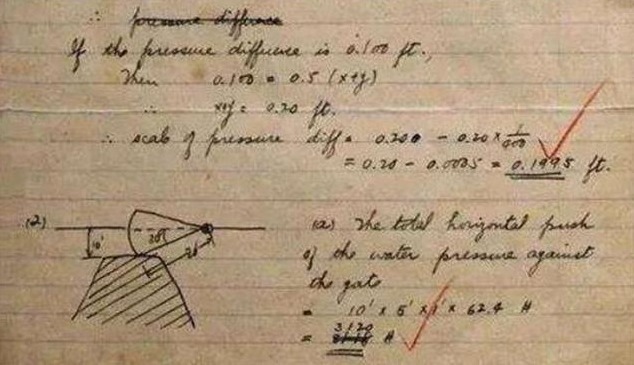 ∴ pressure difference
If the pressure difference is 0.100 ft.,
Then 0.100 = 0.5 (x+y)
∴ x+y = 0.20 ft.
∴ scale of pressure diff = 0.200 - 0.20 x 1/400
= 0.20 - 0.0005 = 0.1995 ft.
(2)
10'
20'
(a) The total horizontal push
of the water pressure against
the gate
= 10' x 5' x 1' x 62.4 #
= 3120 #